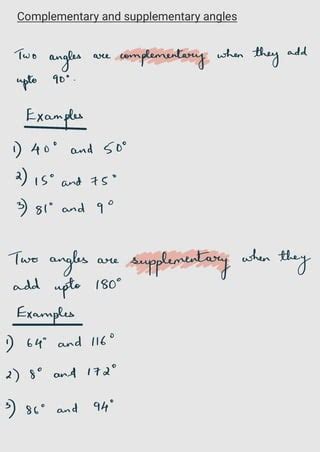 Complementary and supplementary angles
Two angles are complementary when they add
upto 90°.
Examples
1) 40° and 50°
2) 15° and 75°
3) 81° and 9°
Two angles are supplementary when they
add upto 180°
Examples
1) 64° and 116°
2) 8° and 172°
3) 86° and 94°